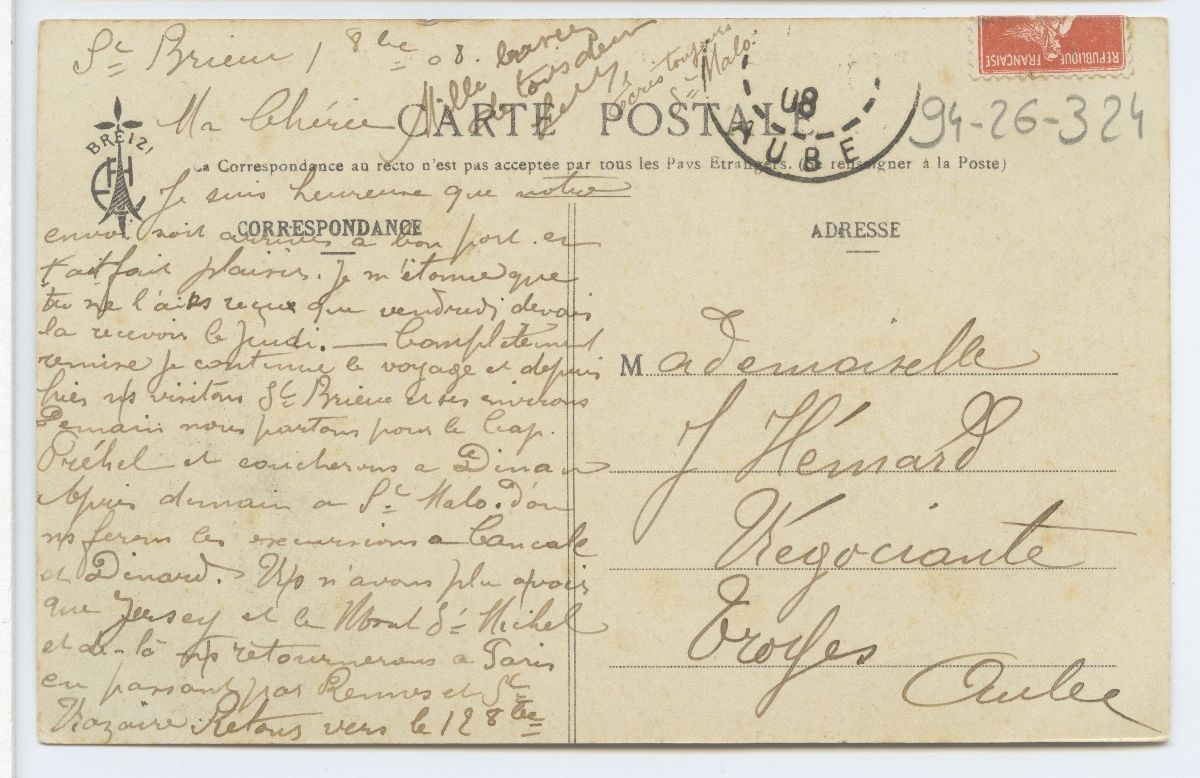 St Brieuc 1 8bre 08.
Mille baisers
de tous deux
Ecris toujours
St Malo.
Ma Chérie
CARTE POSTALE
La Correspondance au recto n'est pas acceptée par tous les Pays Etrangers. (Se renseigner à la Poste)
BREIZ!
REPUBLIQUE FRANÇAISE
08
AUBE
94-26-324
CORRESPONDANCE
Je suis heureuse que notre
envoi soit arrivés a bon port et
t'ait fait plaisir. Je m'étonne que
tu ne l'aies reçue que vendredi devais
la recevoir le Jeudi. — Complètement
remise je continue le voyage et depuis
hier ns visitons St Brieuc et ses environs
Demain nous partons pour le Cap
Fréhel et coucherons a Dinan
Après demain a St Malo. D'ou
ns ferons les excursions a Cancale
et Dinard. Ns n'avons plu a voir
que Jersey et le Mont St Michel
et de-là ns retournerons a Paris
en passant par Rennes et St
Nazaire. Retour vers le 12 8bre
ADRESSE
Mademoiselle
J Hémard
Négociante
Troyes
Aube